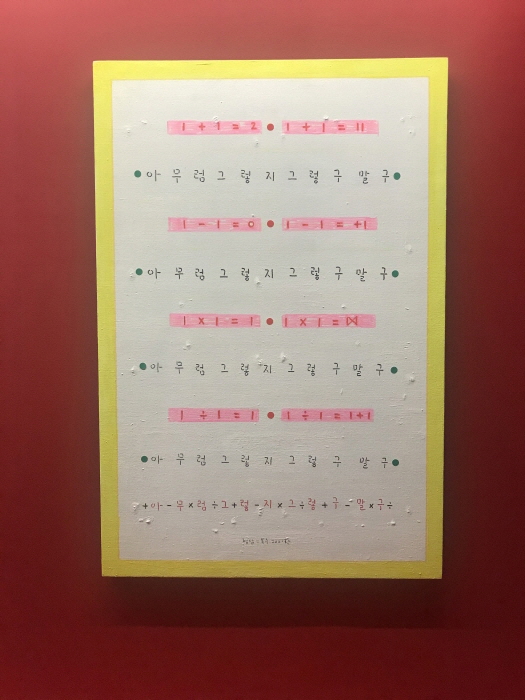 1 + 1 = 2 ● 1 + 1 = 11
● 아 무 렴 그 렇 지 그 렇 구 말 구 ●
1 - 1 = 0 ● 1 - 1 = +1
● 아 무 렴 그 렇 지 그 렇 구 말 구 ●
1 × 1 = 1 ● 1 × 1 =
● 아 무 렴 그 렇 지 그 렇 구 말 구 ●
1 ÷ 1 = 1 ● 1 ÷ 1 = 1+1
● 아 무 렴 그 렇 지 그 렇 구 말 구 ●
+ 아 - 무 × 렴 ÷ 그 + 렇 - 지 × 그 ÷ 렇 + 구 - 말 × 구 ÷